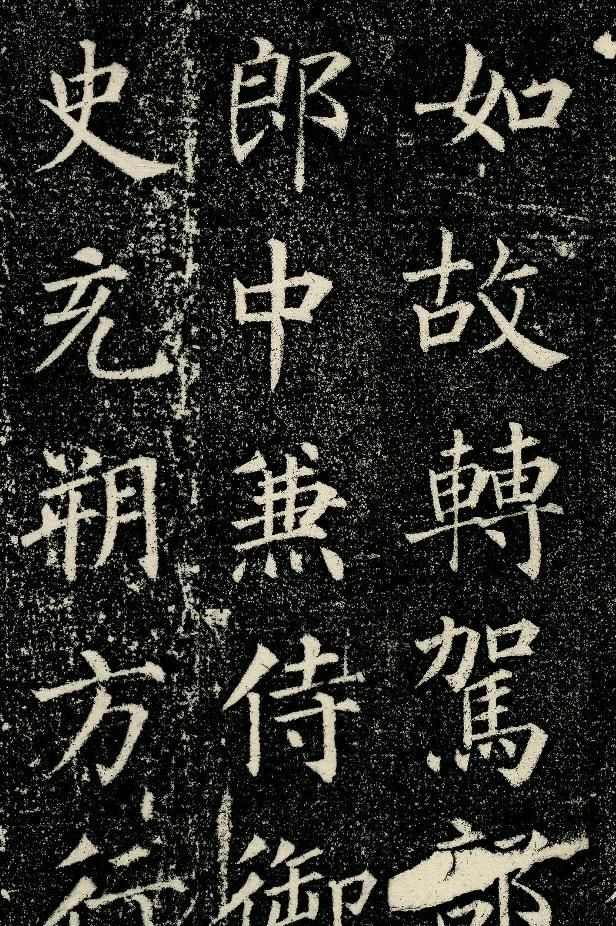 如故轉駕部
郎中兼侍御
史充朔方行